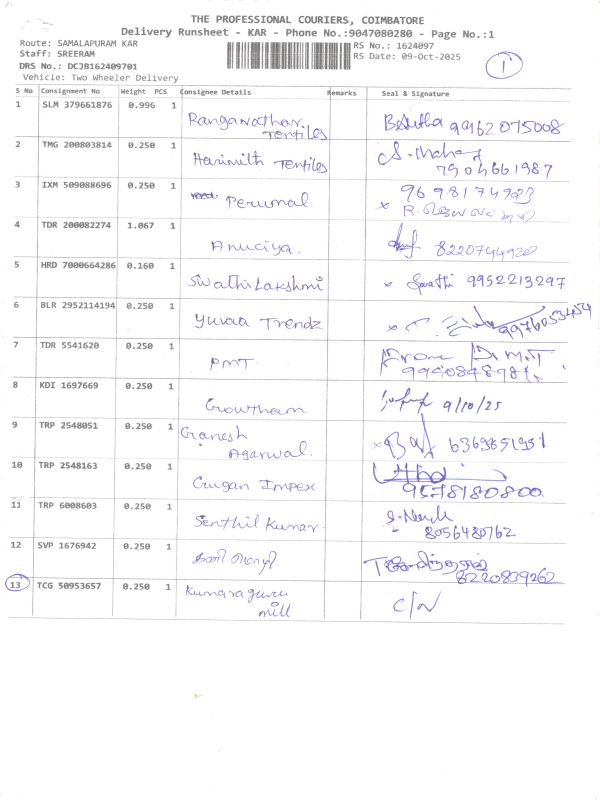 THE PROFESSIONAL COURIERS, COIMBATORE
Delivery Runsheet - KAR - Phone No.:9047080280 - Page No.:1
Route: SAMALAPURAM KAR
RS No.: 1624097
Staff: SREERAM
RS Date: 09-Oct-2025
1
DRS No.: DCJB162409701
Vehicle: Two Wheeler Delivery
S No Consignment No Weight PCS Consignee Details Remarks Seal & Signature
1 SLM 379661876 0.996 1 Ranganathar
Textiles 99162075008
2 TMG 200803814 0.250 1 Harinith Textiles
7904661987
3 IXM 509088696 0.250 1 Perumal
4 TDR 200082274 1.067 1 Anuciya. 8220744920
5 HRD 7000664286 0.160 1 Swathi Lakshmi x Swathi 9952213297
6 BLR 2952114194 0.250 1 Yuvaa Trendz
7 TDR 5541620 0.250 1 PMT
8 KDI 1697669 0.250 1 Gowtham 9/10/25
9 TRP 2548051 0.250 1 Ganesh
Agarwal. 6369851951
10 TRP 2548163 0.250 1 Gugan Impex
9578180800
11 TRP 6008603 0.250 1 Senthil Kumar.
8056480762
12 SVP 1676942 0.250 1 கனிமொழி
8220839262
13 TCG 50953657 0.250 1 Kumaraguru
mill C/N